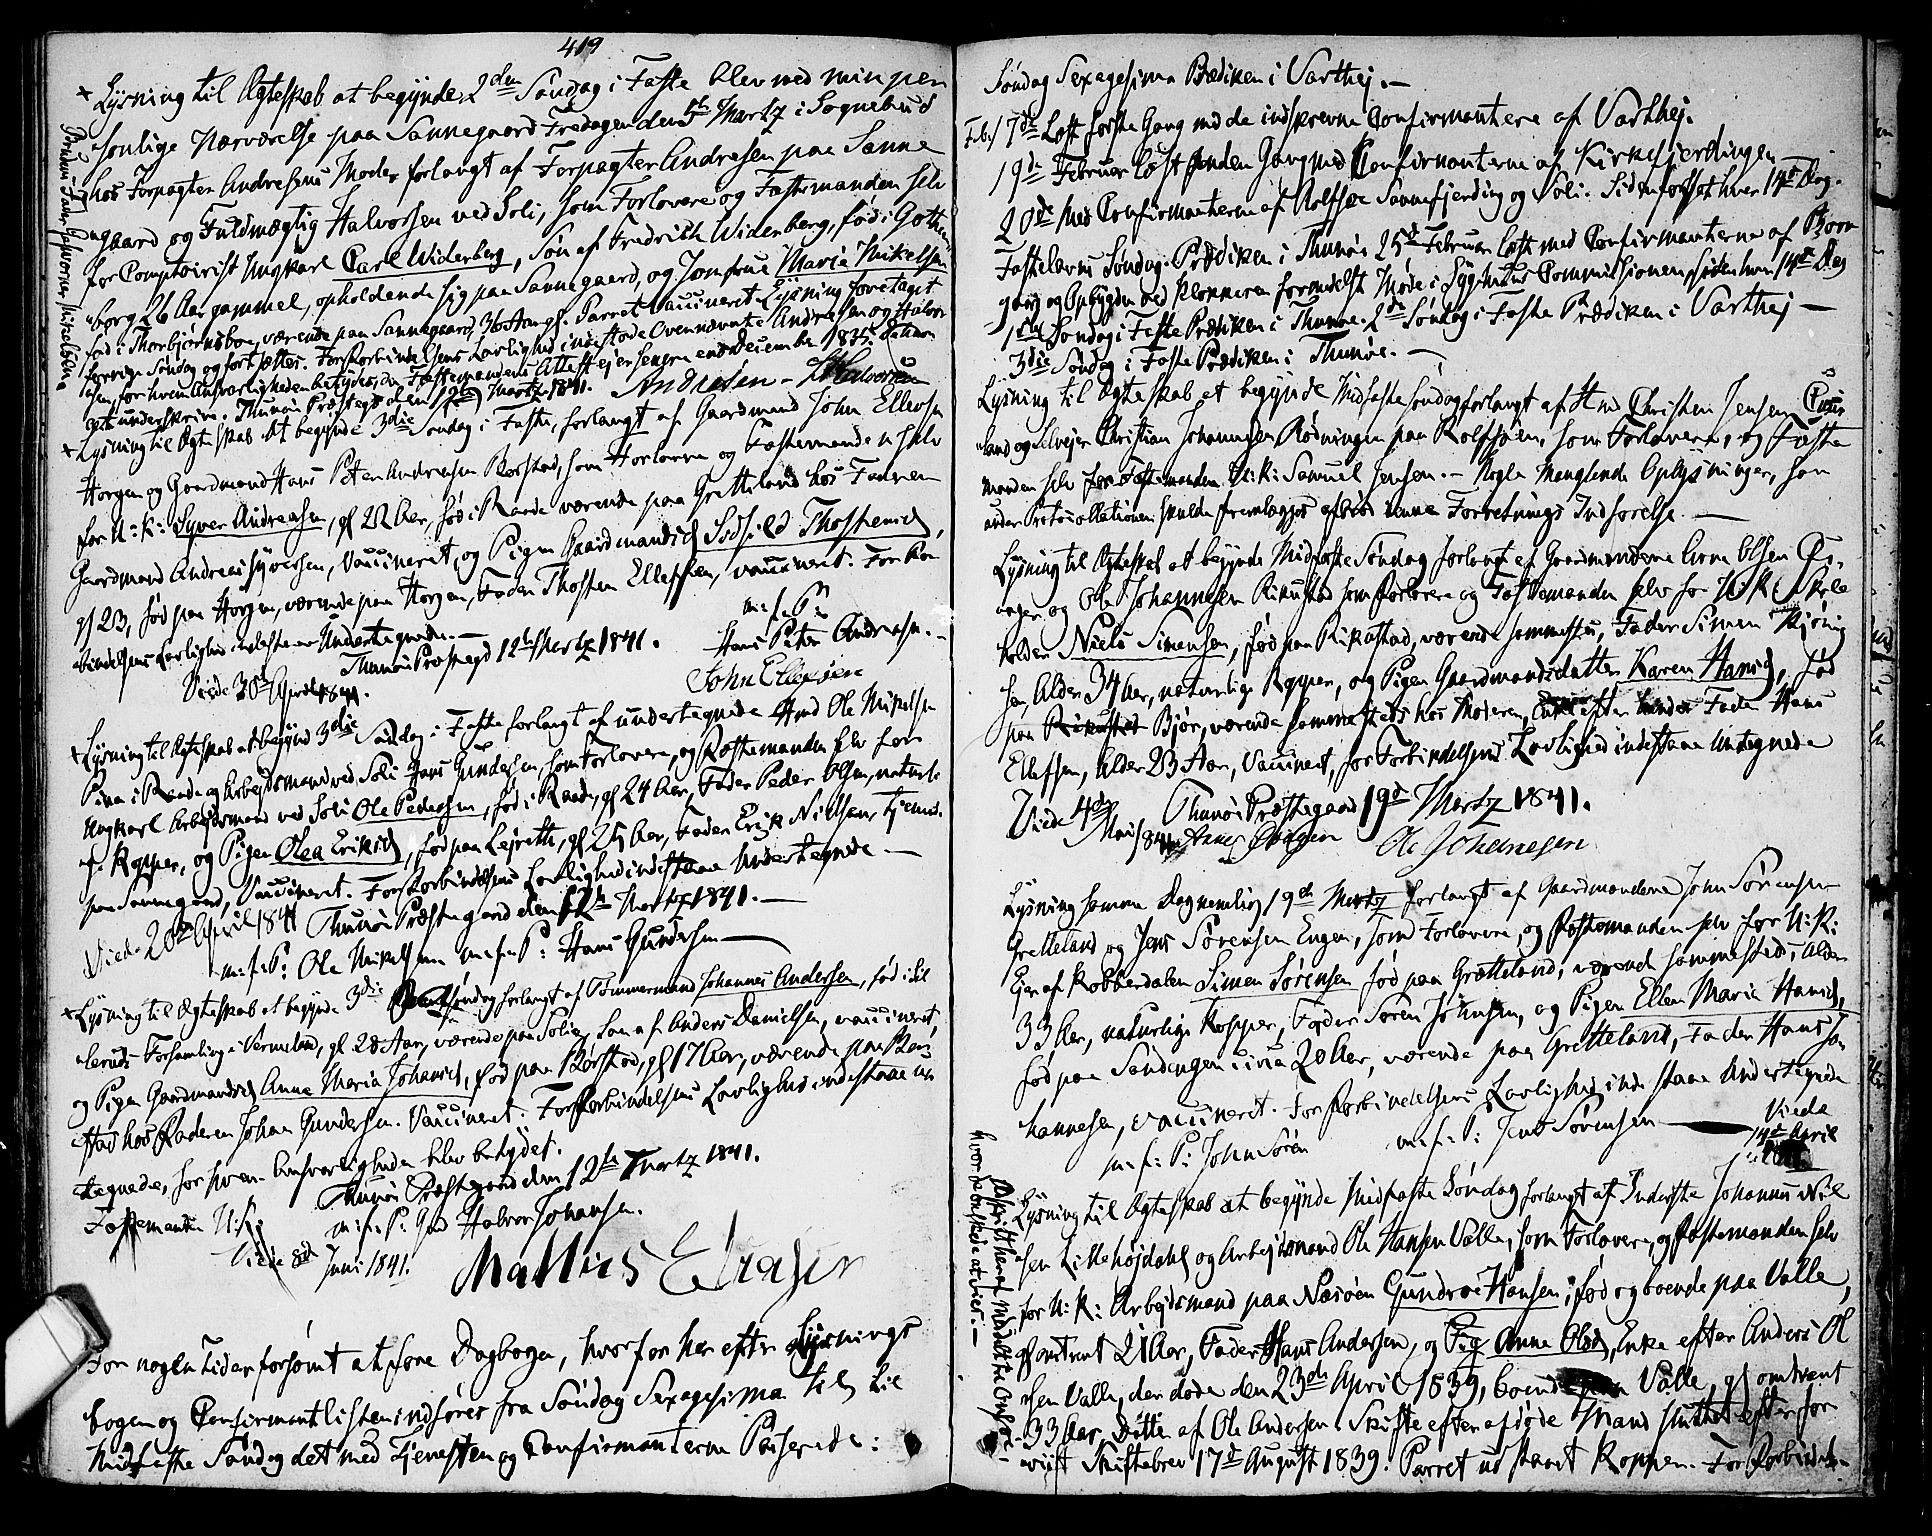 419
Lysning til Ægteskab at begynde 2den Søndag i Faste blev med min per
sonlige Nærværelse paa Sannegaard Fredagen den 5t Martz i Sognebud
hos Forpagter Andresens Moder forlangt af Forpagter Andresen paa Sanne
gaard og Fuldmægtig Halvorsen ved Soli, som Forlovere og Fæstemanden selv
for Comptoirist Ungkarl Carl Widerberg, Søn af Fredrik Widerberg, fød i Gothen
borg 26 Aar gammel, opholdende sig paa Sannegaard, og Jomfrue Maria Mikelsen
fød i Thorbjørnsboe, værende paa Sannegaard, 36 Aar gl. Parret Vaccineret Lysning foretaget
forrige Søndag og fortsættes. For Forbindelsens Lovlighed indestode Ovennævnte Andresen og Halvor
sen, for hvem Ansvarligheden betydes, Fæstemandens Attest ej er senere end December 1835
at underskrive. Thunøe Præstegd den 12te Martz 1841. Andresen - Halvorsen
Lysning til Ægteskab at begynde 3die Søndag i Faste, forlangt af Gaardmand John Ellevsen
Horgen og Gaardmand Hans Peter Andreasen Borstad, som Forlovere og Fæstemanden selv
for U: K: Syver Andreasen, gl 22 Aar, fød i Raade værende paa Gretteland hos Faderen
Gaardmand Andreas Syversen, Vaccineret, og Pigen Gaardmandsd Sidsel Thostensd,
gl 23, fød paa Horgen, værende paa Horgen, Fader Thosten Ellefsen, vaccineret. For For
bindelsens Lovlighed indestaae Undertegnede. —
Thunøe Præstegd 12te Martz 1841. m: f: P:
Hans Peter Andreasen. -
Viede 30te April 1841. John Ellefsen
Lysning til Ægteskab at begynde 3die Søndag i Faste forlangt af undertegnede Hmd Ole Mikelsen
i Raade og Arbejdsmand ved Soli Hans Gundersen, som Forlovere, og Fæstemanden selv for
Ungkarl Arbejdsmand ved Soli Ole Pedersen, fød i Raade, gl 24 Aar, Fader Peder Olsen, naturli
ge Kopper, og Pigen Olea Eriksd, fød paa Lejrette, gl 25 Aar, Fader Erik Nielsen, tjenende
paa Sannegaard, Vaccineret. For Forbindelsens Lovlighed indestaae Undertegnede —
Viede 20de April 1841 Thunøe Præstegaard den 12te Martz 1841. —
m: f: P: Ole Mikelsen m: f: P: Hans Gundersen
Lysning til Ægteskab at begynde 3die Søndag forlangt af Tømmermand Johannes Andersen, fød i Sil
leruds Forsamling i Vermeland, gl 28 Aar, værende paa Solie, Søn af Anders Danielsen, vaccineret,
og Pigen Gaardmandsd Anne Maria Johansd, fød paa Borstad, gl 17 Aar, værende paa Bor
stad hos Faderen Johan Gundersen. Vaccineret. For Forbindelsens Lovlighed indestaae un
dertegnede, for hvem Ansvarligheden blev betydet.
Thunøe Præstegaard den 12te Martz 1841.
Fæstemanden U: K: m: f: P: Halvor Johansen.
Viede 8de Juni 1841. Mathies
For nogen Tid er forsømt at føre Dagbogen, hvorfor her efter Lysnings
bogen og Confirmantlisten indføres fra Søndag Sexagesima til
Midfaste Søndag det med Tjenesten og Confirmanterne Passerede:
Søndag Sexagesima Prædiken i Varthej. —
Feb. 17de Læst første Gang med de indskrevne Confirmantere af Varthej.
19de Februar Læst anden Gang med Confirmanterne af Kirkefjerdingen
20de med Confirmanterne af Rolfsøe Sannefjerding og Soli. Siden fortsat hver 14de Dag.
Fastelavns Søndag. Prædiken i Thunøe 25de Februar læst med Confirmanterne af Born
gang og Opbygden ved Klokkeren formedelst Møde i Sygehuus Commissionen siden hver 14de Dag
1ste Søndag i Faste Prædiken i Thunøe. 2de Søndag i Faste Prædiken i Varthej —
3die Søndag i Faste Prædiken i Thunøe. —
Lysning til Ægteskab at begynde Midfaste Søndag forlangt af Hmd Christen Jensen
land og Selvejer Christian Johannesen Rødningen paa Rolfsøen, som Forlovere, og Fæste
manden selv for Fæstemanden U: K: Samuel Jensen. — Nogle manglende Oplysninger, som
under Protocollationen skulde fremlægges afbrød denne Forretnings Indførelse. —
Lysning til Ægteskab at begynde Midfaste Søndag forlangt af Gaardmændene Arne Olsen
og Ole Johannesen Rikustad som Forlovere og Fæstemanden selv for U: K: Skole
holder Niels Simensen, fød paa Rikustad, værende sammesteds, Fader Simen
sen, Alder 34 Aar, naturlige Kopper, og Pigen Gaardmandsdatter Karen Hansd, fød
paa Rikustad Bjør, værende sammesteds hos Moderen, Enke efter hendes Fader Hans
Ellefsen, Alder 23 Aar, Vaccineret, for Forbindelsens Lovlighed indestaae Undtegnede
Viede 4de Thunøe Præstegaard 19de Martz 1841.
1841 Ole Johannesen
Lysning samme Dag nemlig 19de Martz forlangt af Gaardmændene John Sørensen
Gretteland og Jens Sørensen Engen, som Forlovere, og Fæstemanden selv for U: K:
Ejer af Kobberdalen Simen Sørensen fød paa Grætteland, værende sammesteds, Alder
33 Aar, naturlige Kopper, Fader Søren Johnsen, og Pigen Ellen Maria Hansd,
fød paa Sandengen circa 20 Aar, værende paa Gretteland, Fader Hans Jo
hannesen, vaccineret. For Forbindelsens Lovlighed indestaae Undertegnede
m: f: P: John Søren m: f: P: Jens Sørensen — Viede
14de April
Lysning til Ægteskab at begynde Midfaste Søndag forlangt af Inderste Johannes Niel
sen Lillehøjdahl og Arbejdsmand Ole Hansen Valle, som Forlovere, og Fæstemanden selv
for U: K: Arbejdsmand paa Næsøen Gundroe Hansen, fød og boende paa Valle,
gl omtrent 21 Aar, Fader Hans Andersen, og Pig Anne Olsd, Enke efter Anders Ol
sen Valle, der døde den 23de April 1839, boende Valle, gl omtrent
33 Aar, Datter af Ole Andersen. Skifte efter afdøde Mand sluttet efter fore
viist Skiftebrev 17de August 1839. Parret udstaaet Kopper. For Forbindel-